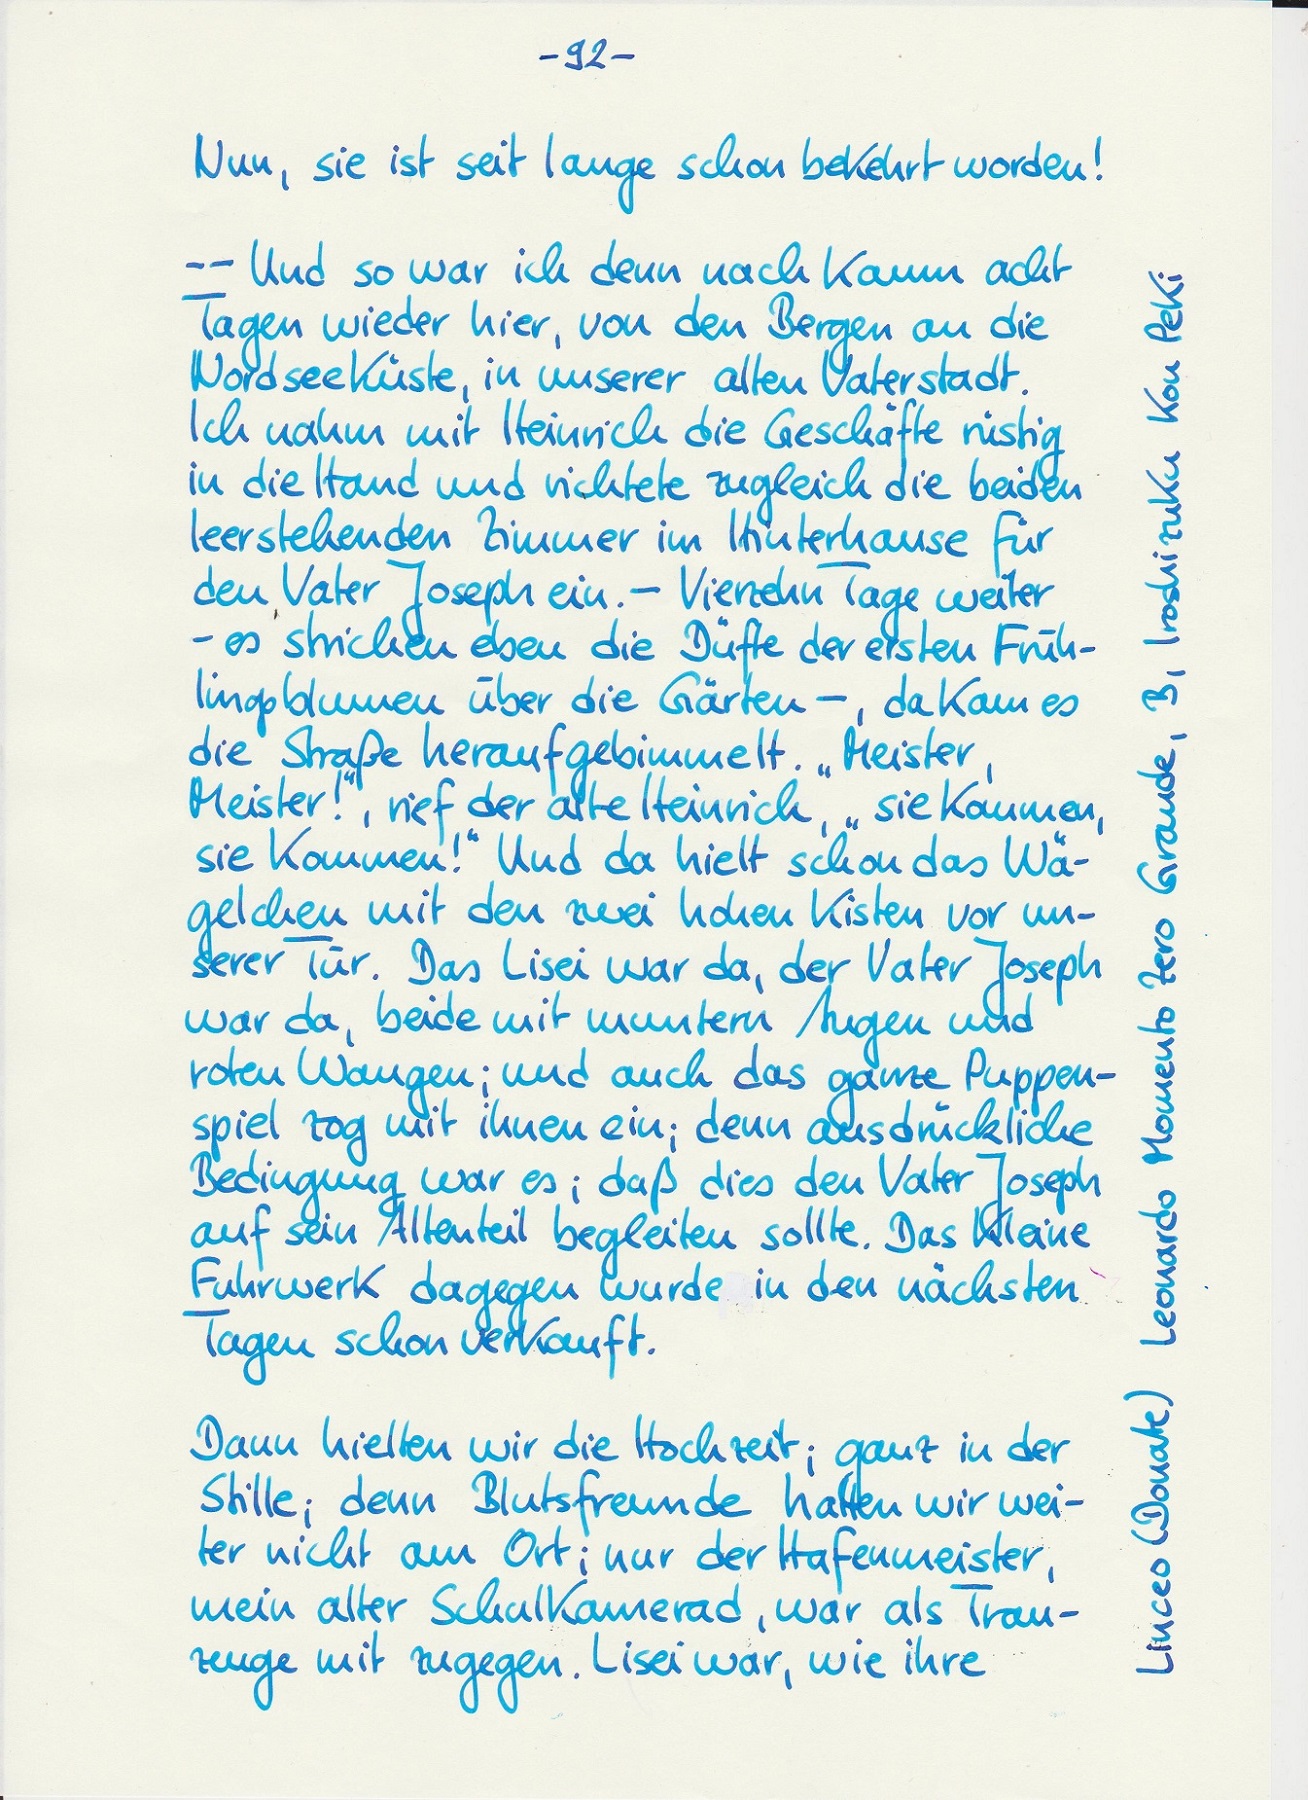 -92-
Nun, sie ist seit lange schon bekehrt worden!
-- Und so war ich denn nach kaum acht
Tagen wieder hier, von den Bergen an die
Nordseeküste, in unserer alten Vaterstadt.
Ich nahm mit Heinrich die Geschäfte rüstig
in die Hand und richtete zugleich die beiden
leerstehenden Zimmer im Hinterhause für
den Vater Joseph ein. – Vierzehn Tage weiter
- es strichen eben die Düfte der ersten Früh-
lingsblumen über die Gärten –, da kam es
die Straße heraufgebimmelt. „Meister,
Meister!“, rief der alte Heinrich, „sie kommen,
sie kommen!“ Und da hielt schon das Wä-
gelchen mit den zwei hohen Kisten vor un-
serer Tür. Das Lisei war da, der Vater Joseph
war da, beide mit muntern Augen und
roten Wangen; und auch das ganze Puppen-
spiel zog mit ihnen ein; denn ausdrückliche
Bedingung war es; daß dies den Vater Joseph
auf sein Altenteil begleiten sollte. Das kleine
Fuhrwerk dagegen wurde in den nächsten
Tagen schon verkauft.
Dann hielten wir die Hochzeit; ganz in der
Stille; denn Blutsfreunde hatten wir wei-
ter nicht am Ort; nur der Hafenmeister,
mein alter Schulkamerad, war als Trau-
zeuge mit zugegen. Lisei war, wie ihre
Linceo (Donate) Leonardo Momento Zero Grande, B, Iroshizuku Kon Peki